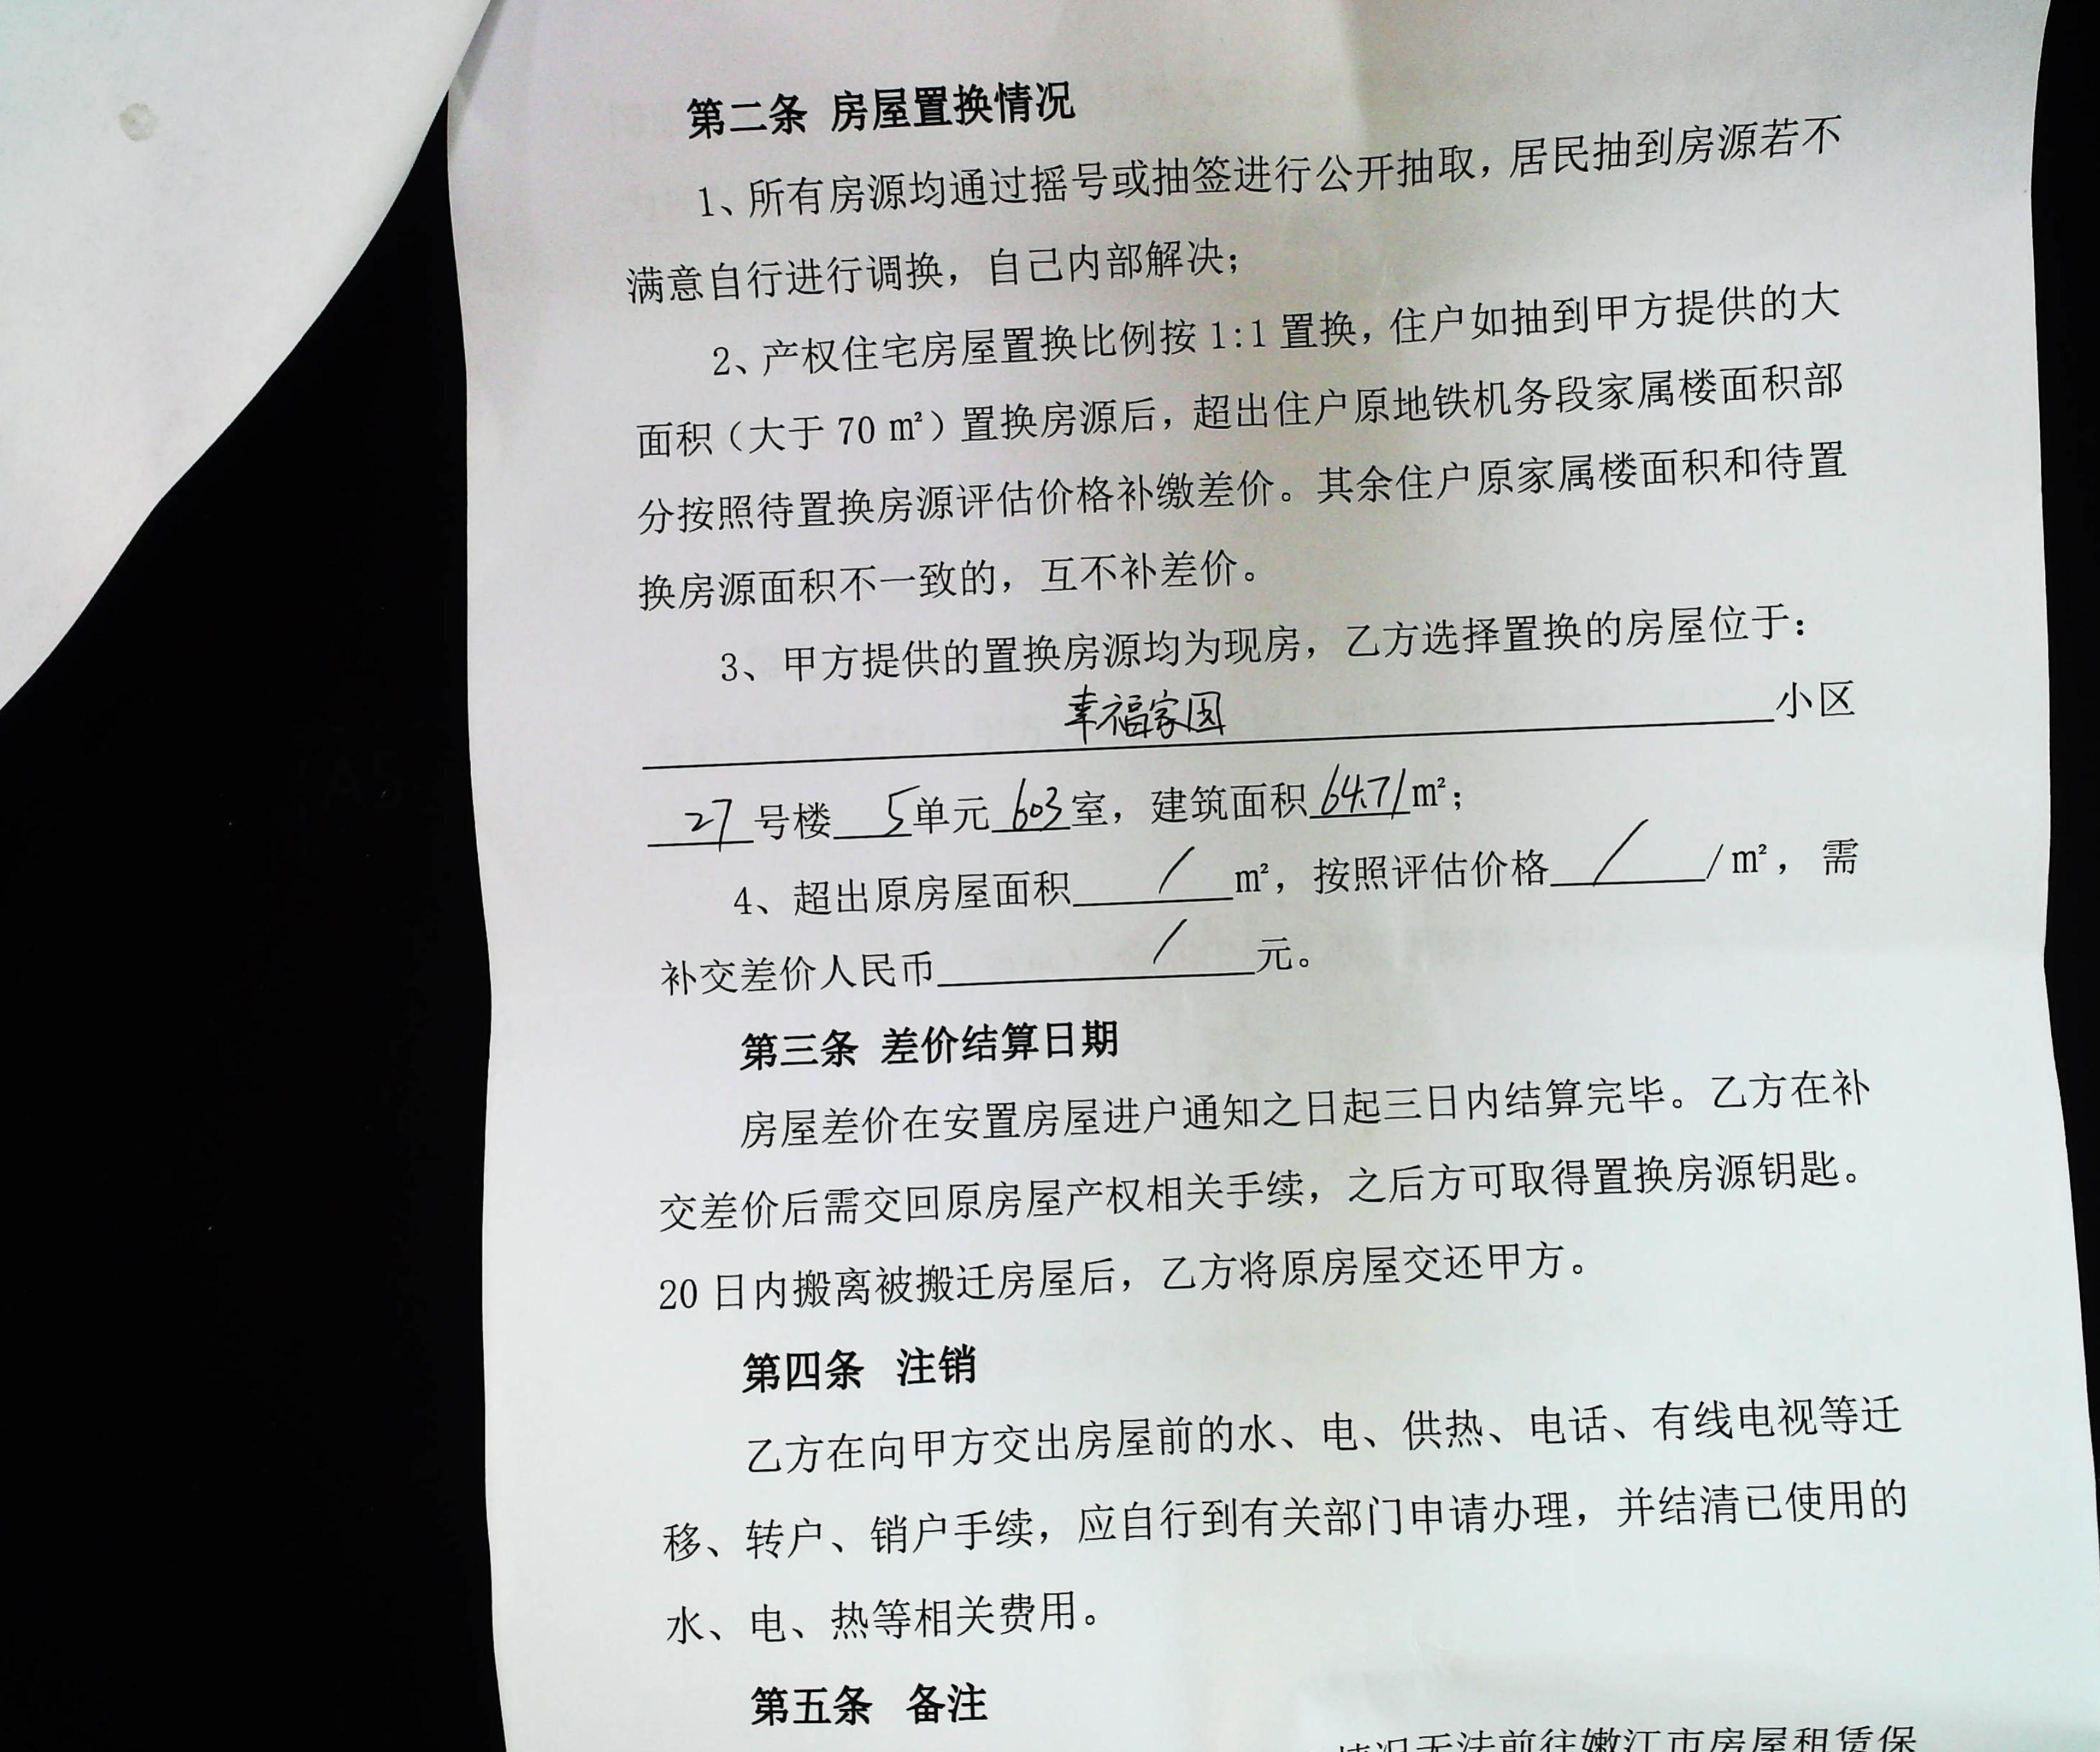 第二条 房屋置换情况
1、所有房源均通过摇号或抽签进行公开抽取，居民抽到房源若不
满意自行进行调换，自己内部解决；
2、产权住宅房屋置换比例按1:1置换，住户如抽到甲方提供的大
面积（大于70㎡）置换房源后，超出住户原地铁机务段家属楼面积部
分按照待置换房源评估价格补缴差价。其余住户原家属楼面积和待置
换房源面积不一致的，互不补差价。
3、甲方提供的置换房源均为现房，乙方选择置换的房屋位于：
幸福家园小区
27号楼5单元603室，建筑面积64.71㎡；
4、超出原房屋面积/㎡，按照评估价格//㎡，需
补交差价人民币/元。
第三条 差价结算日期
房屋差价在安置房屋进户通知之日起三日内结算完毕。乙方在补
交差价后需交回原房屋产权相关手续，之后方可取得置换房源钥匙。
20日内搬离被搬迁房屋后，乙方将原房屋交还甲方。
第四条 注销
乙方在向甲方交出房屋前的水、电、供热、电话、有线电视等迁
移、转户、销户手续，应自行到有关部门申请办理，并结清已使用的
水、电、热等相关费用。
第五条 备注
情况无法前往嫩江市房屋租赁保